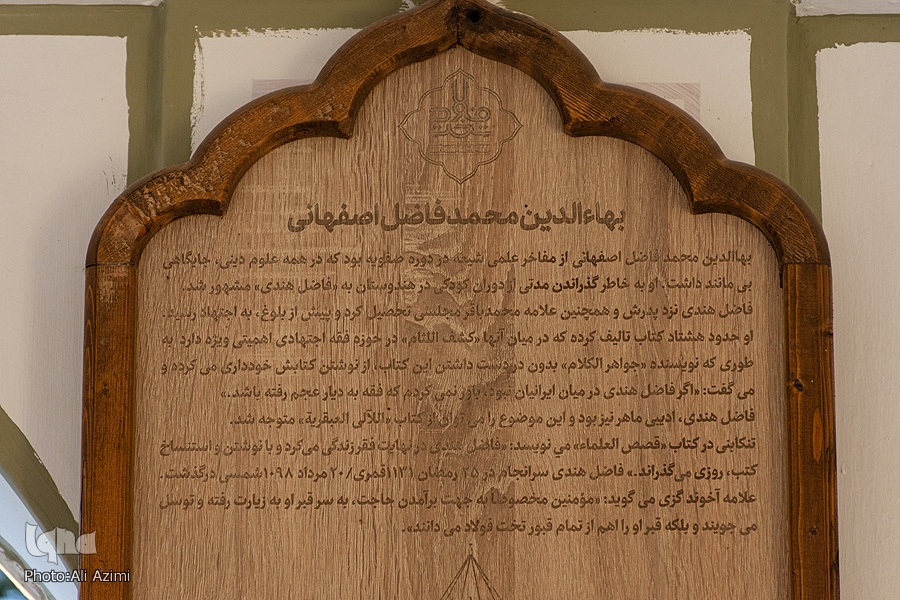 بهاءالدین محمد فاضل اصفهانی
بهاالدین محمد فاضل اصفهانی از مفاخر علمی شیعه در دوره صفویه بود که در همه علوم دینی، جایگاهی
بی مانند داشت. او به خاطر گذراندن مدتی از دوران کودکی در هندوستان به «فاضل هندی» مشهور شد.
فاضل هندی نزد پدرش و همچنین علامه محمدباقر مجلسی تحصیل کرد و پیش از بلوغ، به اجتهاد رسید.
او حدود هشتاد کتاب تالیف کرده که در میان آنها «کشف اللثام» در حوزه فقه اجتهادی اهمیتی ویژه دارد به
طوری که نویسنده «جواهر الکلام» بدون در دست داشتن این کتاب، از نوشتن کتابش خودداری می کرده و
می گفت: «اگر فاضل هندی در میان ایرانیان نبود، باور نمی کردم که فقه به دیار عجم رفته باشد.»
فاضل هندی، ادیبی ماهر نیز بود و این موضوع را می توان از کتاب «اللآلی العبقریة» متوجه شد.
تنکابنی در کتاب «قصص العلماء» می نویسد: «فاضل هندی در نهایت فقر زندگی می‌کرد و با نوشتن و استنساخ
کتب، روزی می‌گذراند.» فاضل هندی سرانجام در ۲۵ رمضان ۱۱۳۱قمری/۲۰ مرداد ۱۰۹۸شمسی درگذشت.
علامه آخوند گزی می گوید: «مؤمنین مخصوصاً به جهت برآمدن حاجت، به سر قبر او به زیارت رفته و توسل
می جویند و بلکه قبر او را اهم از تمام قبور تخت فولاد می دانند».
iqna
Photo:Ali Azimi